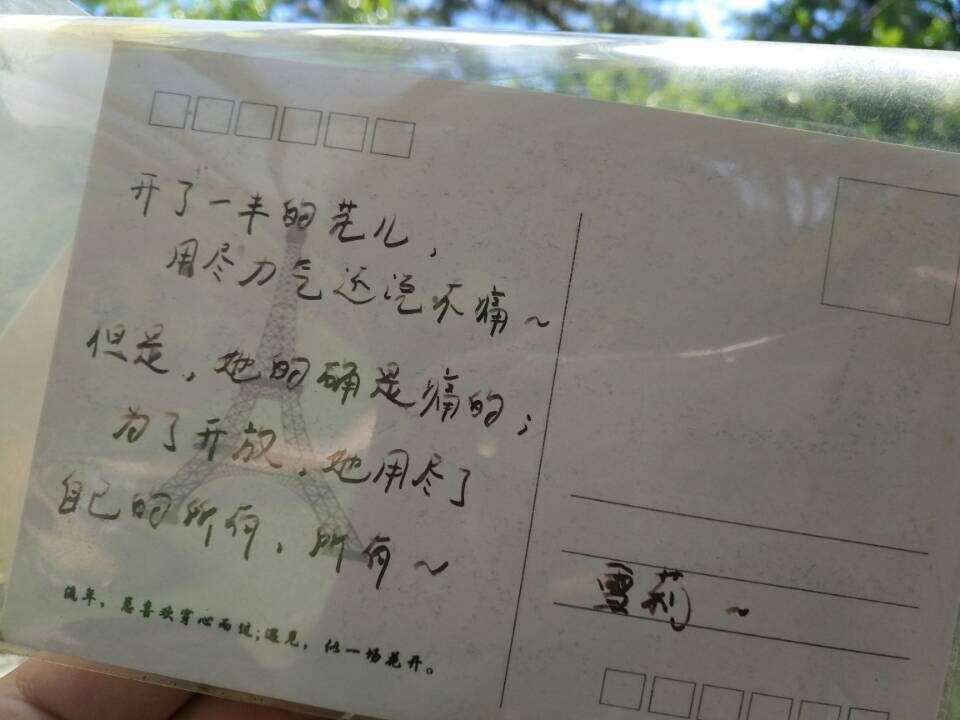 开了一半的花儿，
用尽力气还说不痛～
但是，她的确是痛的；
为了开放，她用尽了
自己的所有，所有～
流年，总喜欢穿心而过；遇见，似一场花开。
雪莉～